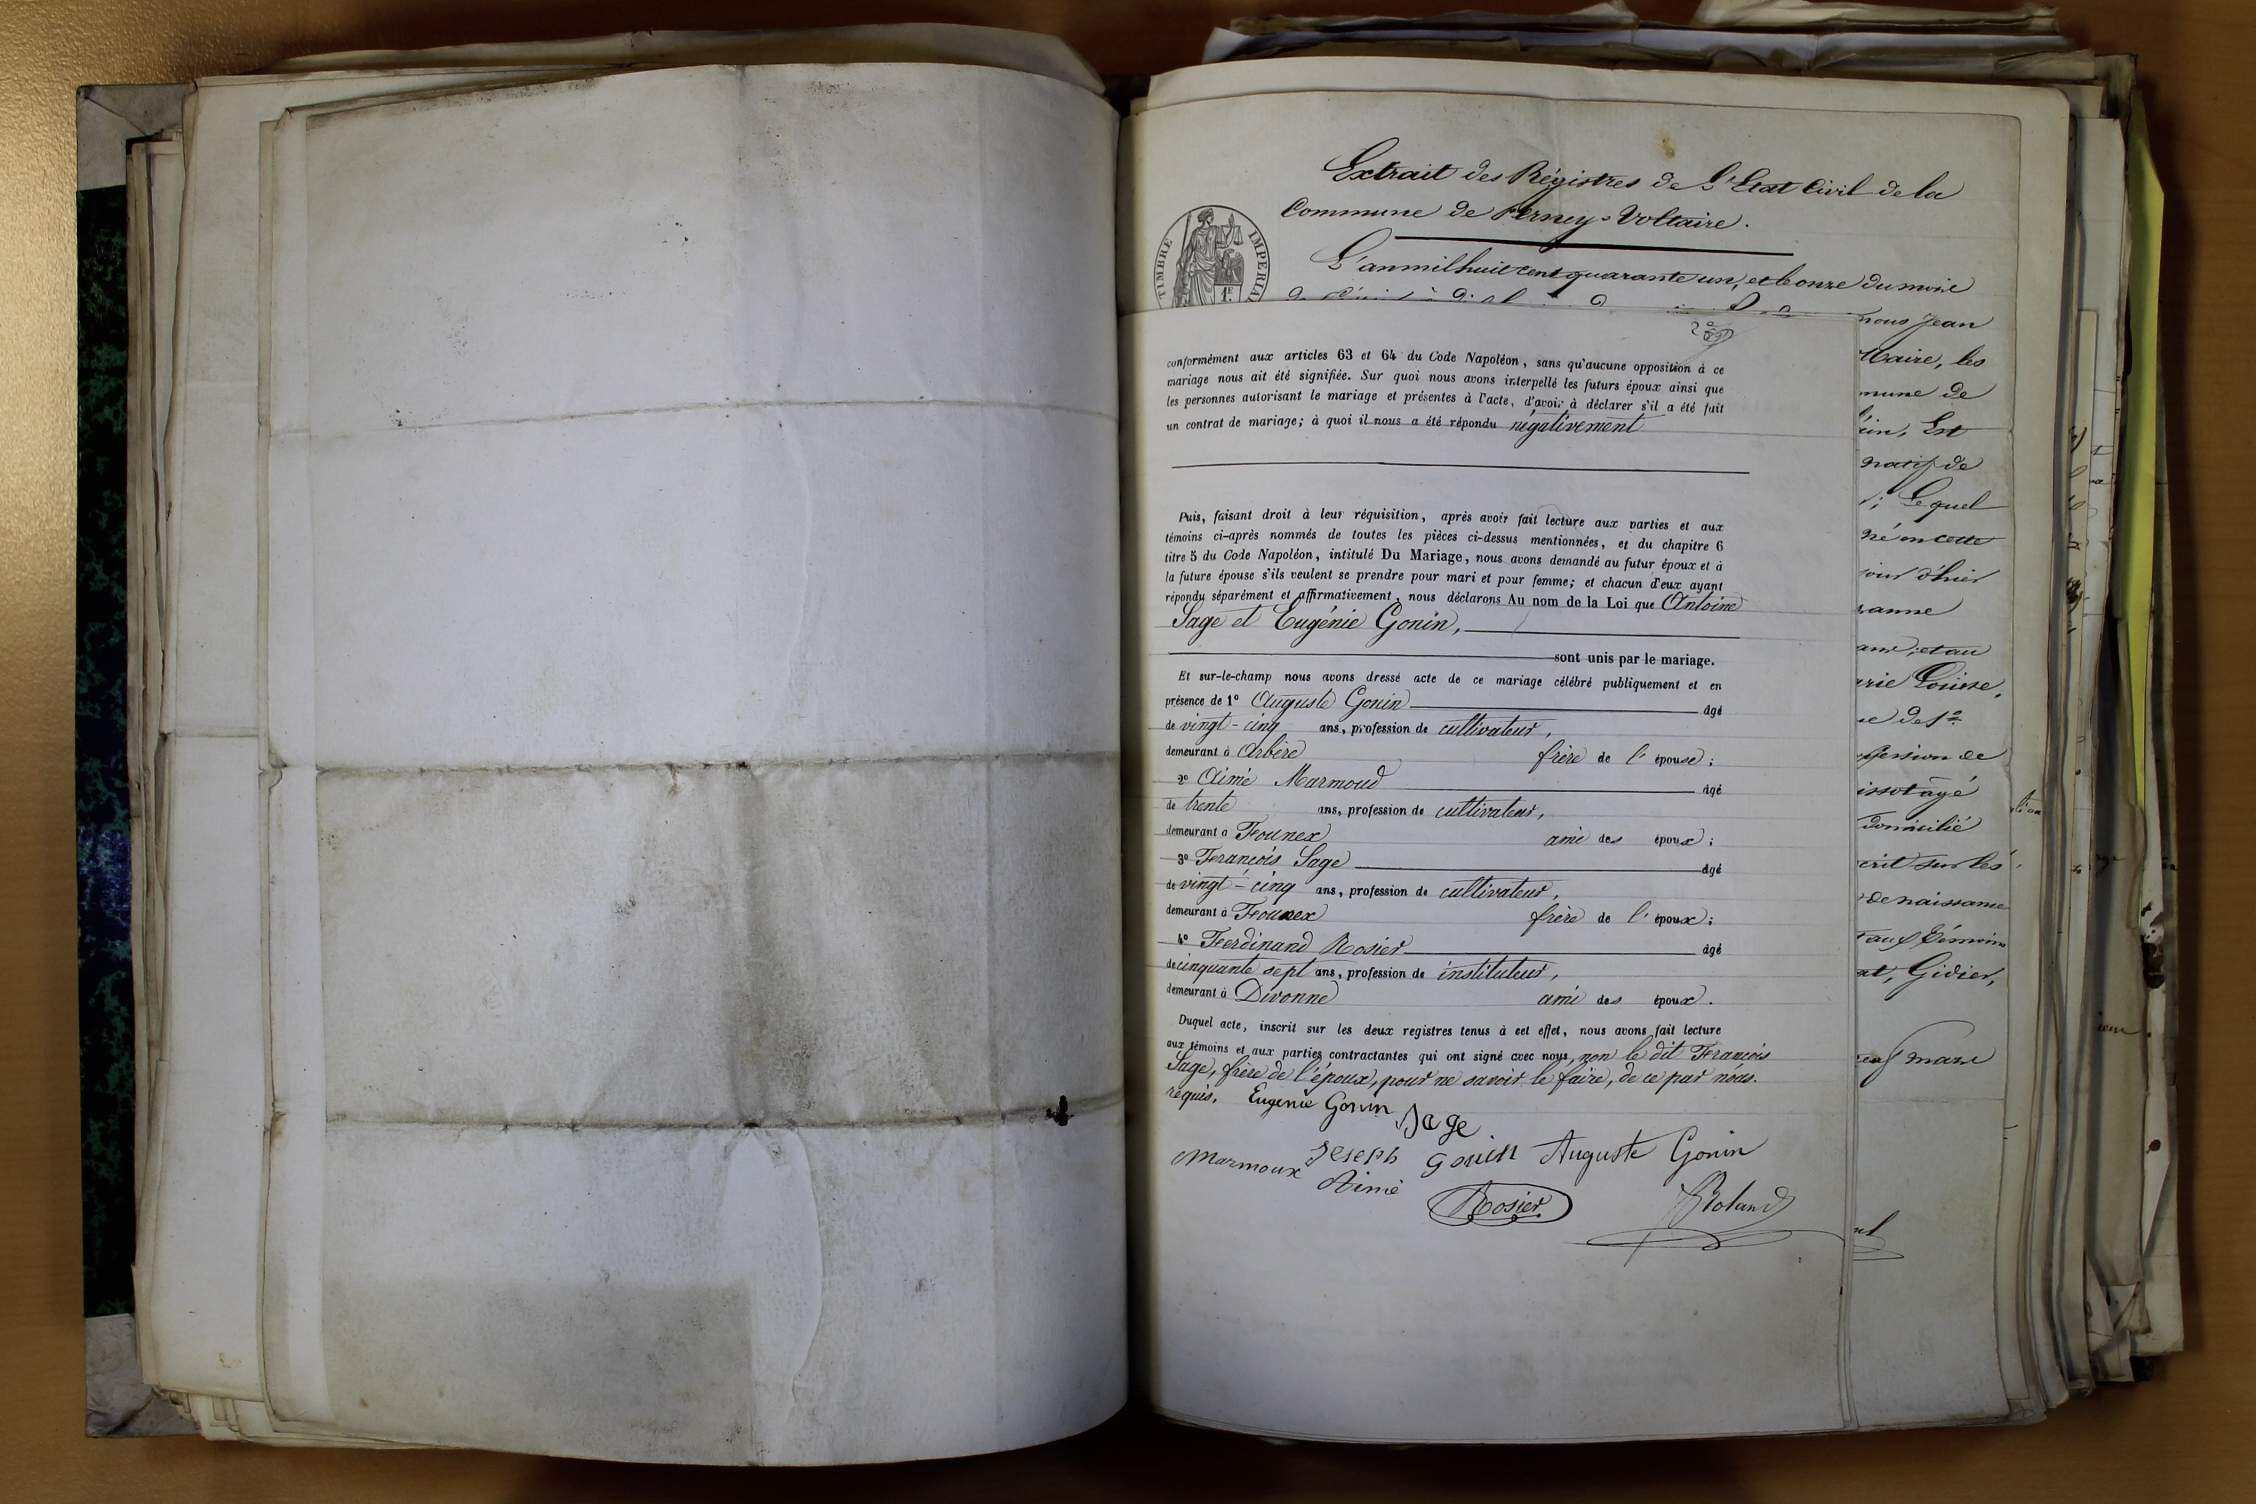 Extrait des Régistres de l'Etat Civil de la
Commune de Ferney-Voltaire.
TIMBRE IMPERIAL
1F.
L'an mil huit cent quarante un, et le onze du mois
nous Jean
Maire, les
mune de
Est
natif de
; Lequel
né en cette
jour d'hier
anne
et au
rie Louise,
fession de
issot agé
domicilié
crit sur les
de naissance
aux témoins
at, Gidier,
mare
conformément aux articles 63 et 64 du Code Napoléon, sans qu'aucune opposition à ce
mariage nous ait été signifiée. Sur quoi nous avons interpellé les futurs époux ainsi que
les personnes autorisant le mariage et présentes à l'acte, d'avoir à déclarer s'il a été fait
un contrat de mariage; à quoi il nous a été répondu négativement
Puis, faisant droit à leur réquisition, après avoir fait lecture aux parties et aux
témoins ci-après nommés de toutes les pièces ci-dessus mentionnées, et du chapitre 6
titre 5 du Code Napoléon, intitulé Du Mariage, nous avons demandé au futur époux et à
la future épouse s'ils veulent se prendre pour mari et pour femme; et chacun d'eux ayant
répondu séparément et affirmativement, nous déclarons Au nom de la Loi que Antoine
Sage et Eugénie Gonin,
sont unis par le mariage.
Et sur-le-champ nous avons dressé acte de ce mariage célébré publiquement et en
présence de 1° Auguste Gonin âgé
de vingt-cinq ans, profession de cultivateur,
demeurant à Arbère frère de l'épouse;
2° Aimé Marmoud âgé
de trente ans, profession de cultivateur,
demeurant à Founex ami des époux;
3° François Sage âgé
de vingt-cinq ans, profession de cultivateur,
demeurant à Founex frère de l'époux;
4° Ferdinand Rosier âgé
de cinquante sept ans, profession de instituteur,
demeurant à Divonne ami des époux.
Duquel acte, inscrit sur les deux registres tenus à cet effet, nous avons fait lecture
aux témoins et aux parties contractantes qui ont signé avec nous, non le dit François
Sage, frère de l'époux, pour ne savoir le faire, de ce par nous
requis. Eugenie Gonin Sage
Marmoux Joseph Gonin Auguste Gonin
Aimé Rosier Roland